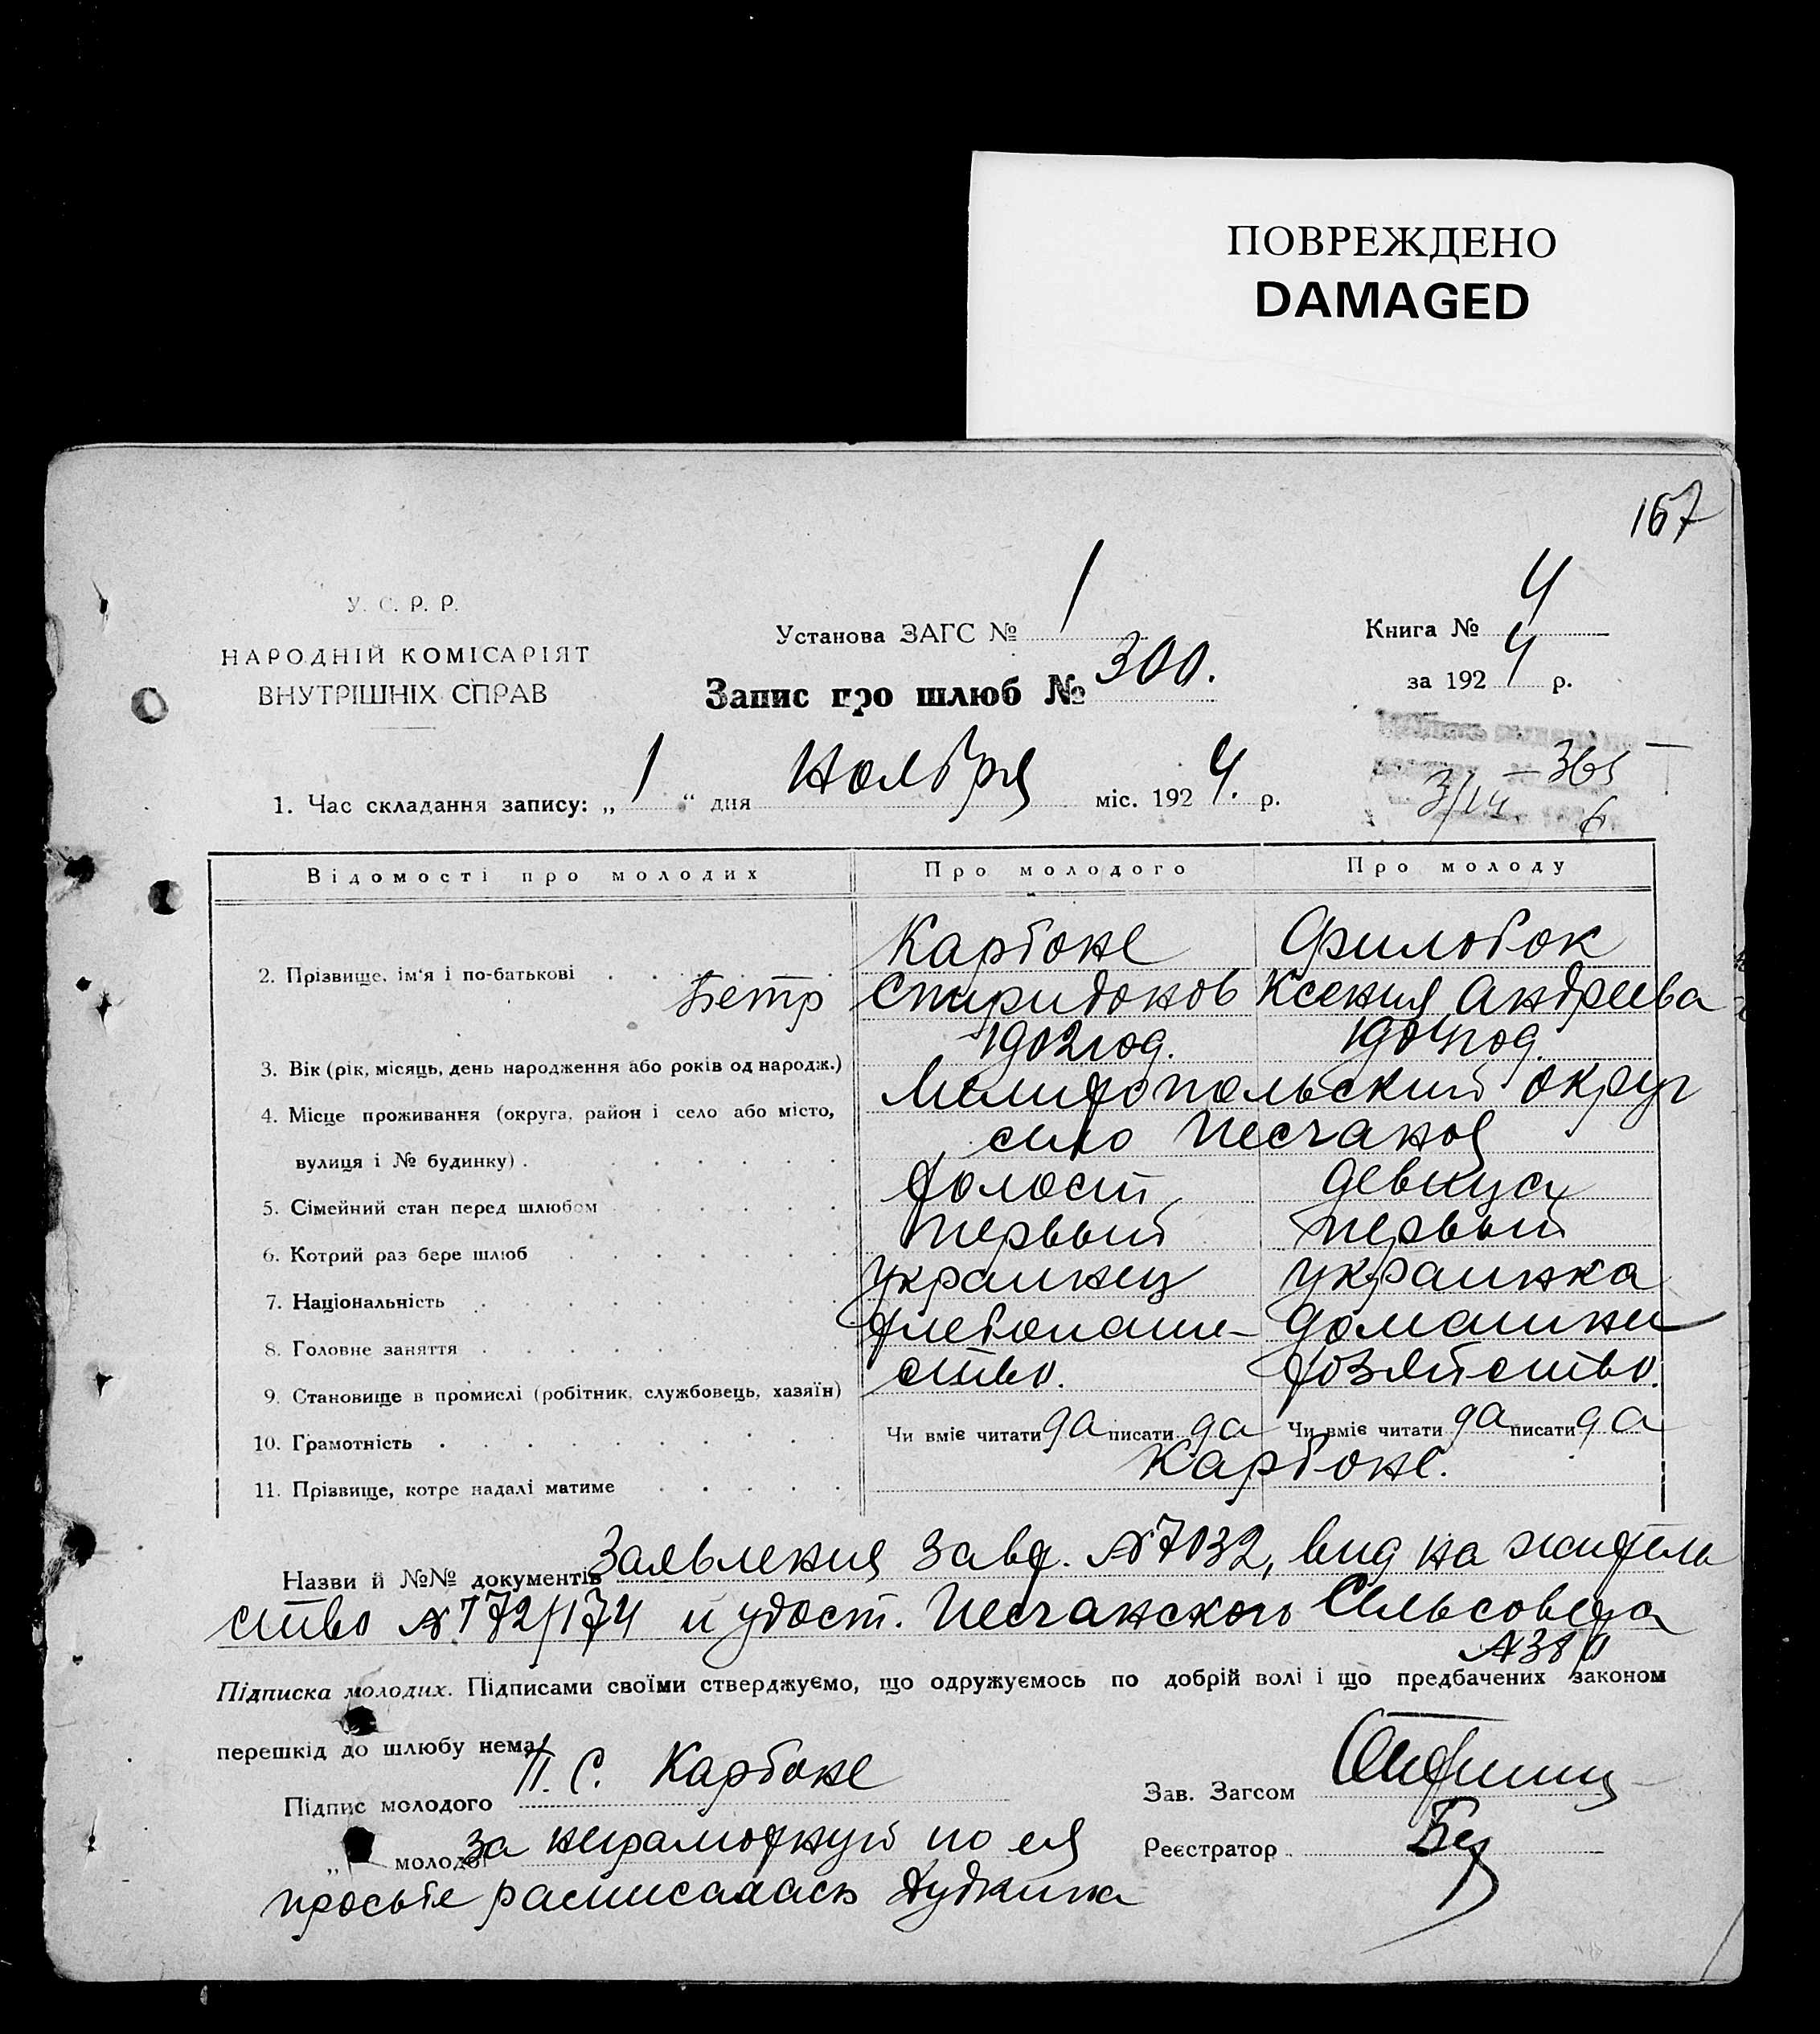 ПОВРЕЖДЕНО
DAMAGED
167
У. С. Р. Р.
НАРОДНІЙ КОМІСАРІЯТ
ВНУТРІШНІХ СПРАВ
Установа ЗАГС № 1
Книга № 4
за 192 4 р.
Запис про шлюб № 300.
365
1. Час складання запису: „ 1 “ дня Ноября міс. 192 4. р.
Відомості про молодих Про молодого Про молоду
Карбоне Филобок
2. Прізвище, ім'я і по-батькові Петр Спиридонов Ксения Андреева
1902 год. 1904 год.
3. Вік (рік, місяць, день народження або років од народж.)
Мелитопольский округ
4. Місце проживання (округа, район і село або місто,
село Песчаное
вулиця і № будинку)
холост девица
5. Сімейний стан перед шлюбом
первый первый
6. Котрий раз бере шлюб
украинец украинка
7. Національність
хлебопаше- домашнее
8. Головне заняття
ство. хозяйство.
9. Становище в промислі (робітник, службовець, хазяїн)
10. Грамотність Чи вміє читати да писати да Чи вміє читати да писати да
Карбоне.
11. Прізвище, котре надалі матиме
Назви й №№ документів Заявления завд. №7032, вид на житель
ство № 172/174 и удост. Песчанского Сельсовета
Підписка молодих. Підписами своїми стверджуємо, що одружуємось по добрій волі і що предбачених законом
перешкід до шлюбу нема.
Підпис молодого П. С. Карбоне
Зав. Загсом
„ молодої за неграмотную по ея
Реєстратор
просьбе расписалась